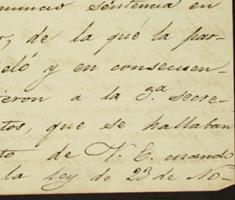 nunció sentencia en
, de la qué la par-
eló y en consecuen-
ieron a la 3.a secre-
tos, que se hallaban
to de V. E. cuando
la ley de 23 de No-